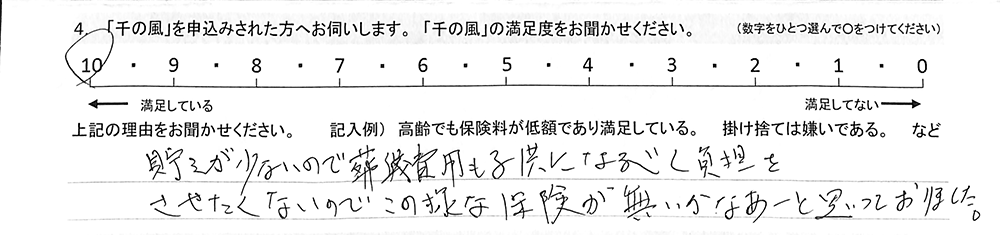 4. 「千の風」を申込みされた方へお伺いします。「千の風」の満足度をお聞かせください。 （数字をひとつ選んで○をつけてください）
10 ・ 9 ・ 8 ・ 7 ・ 6 ・ 5 ・ 4 ・ 3 ・ 2 ・ 1 ・ 0
満足している 満足してない
上記の理由をお聞かせください。 記入例）高齢でも保険料が低額であり満足している。 掛け捨ては嫌いである。 など
貯えが少ないので葬儀費用も子供になるべく負担を
させたくないのでこの様な保険が無いかなあーと思っておりました。